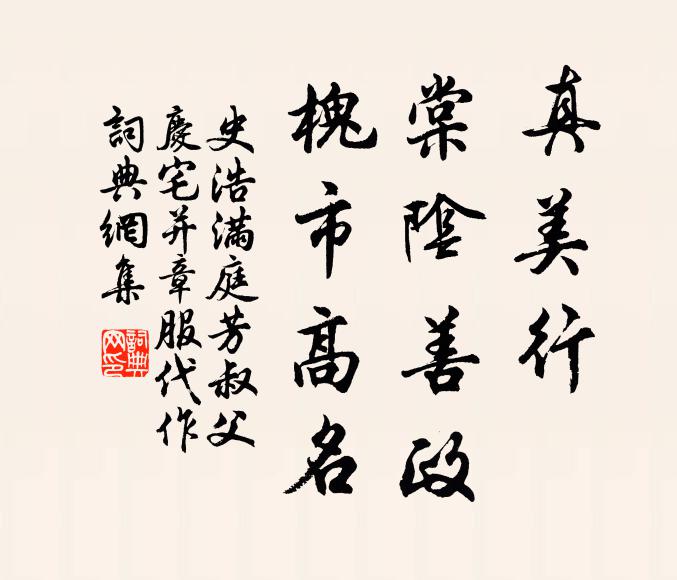 真美行
棠陰善政
槐市高名
史浩滿庭芳叔父
慶宅并章服代作
詞典網集
詞典網印